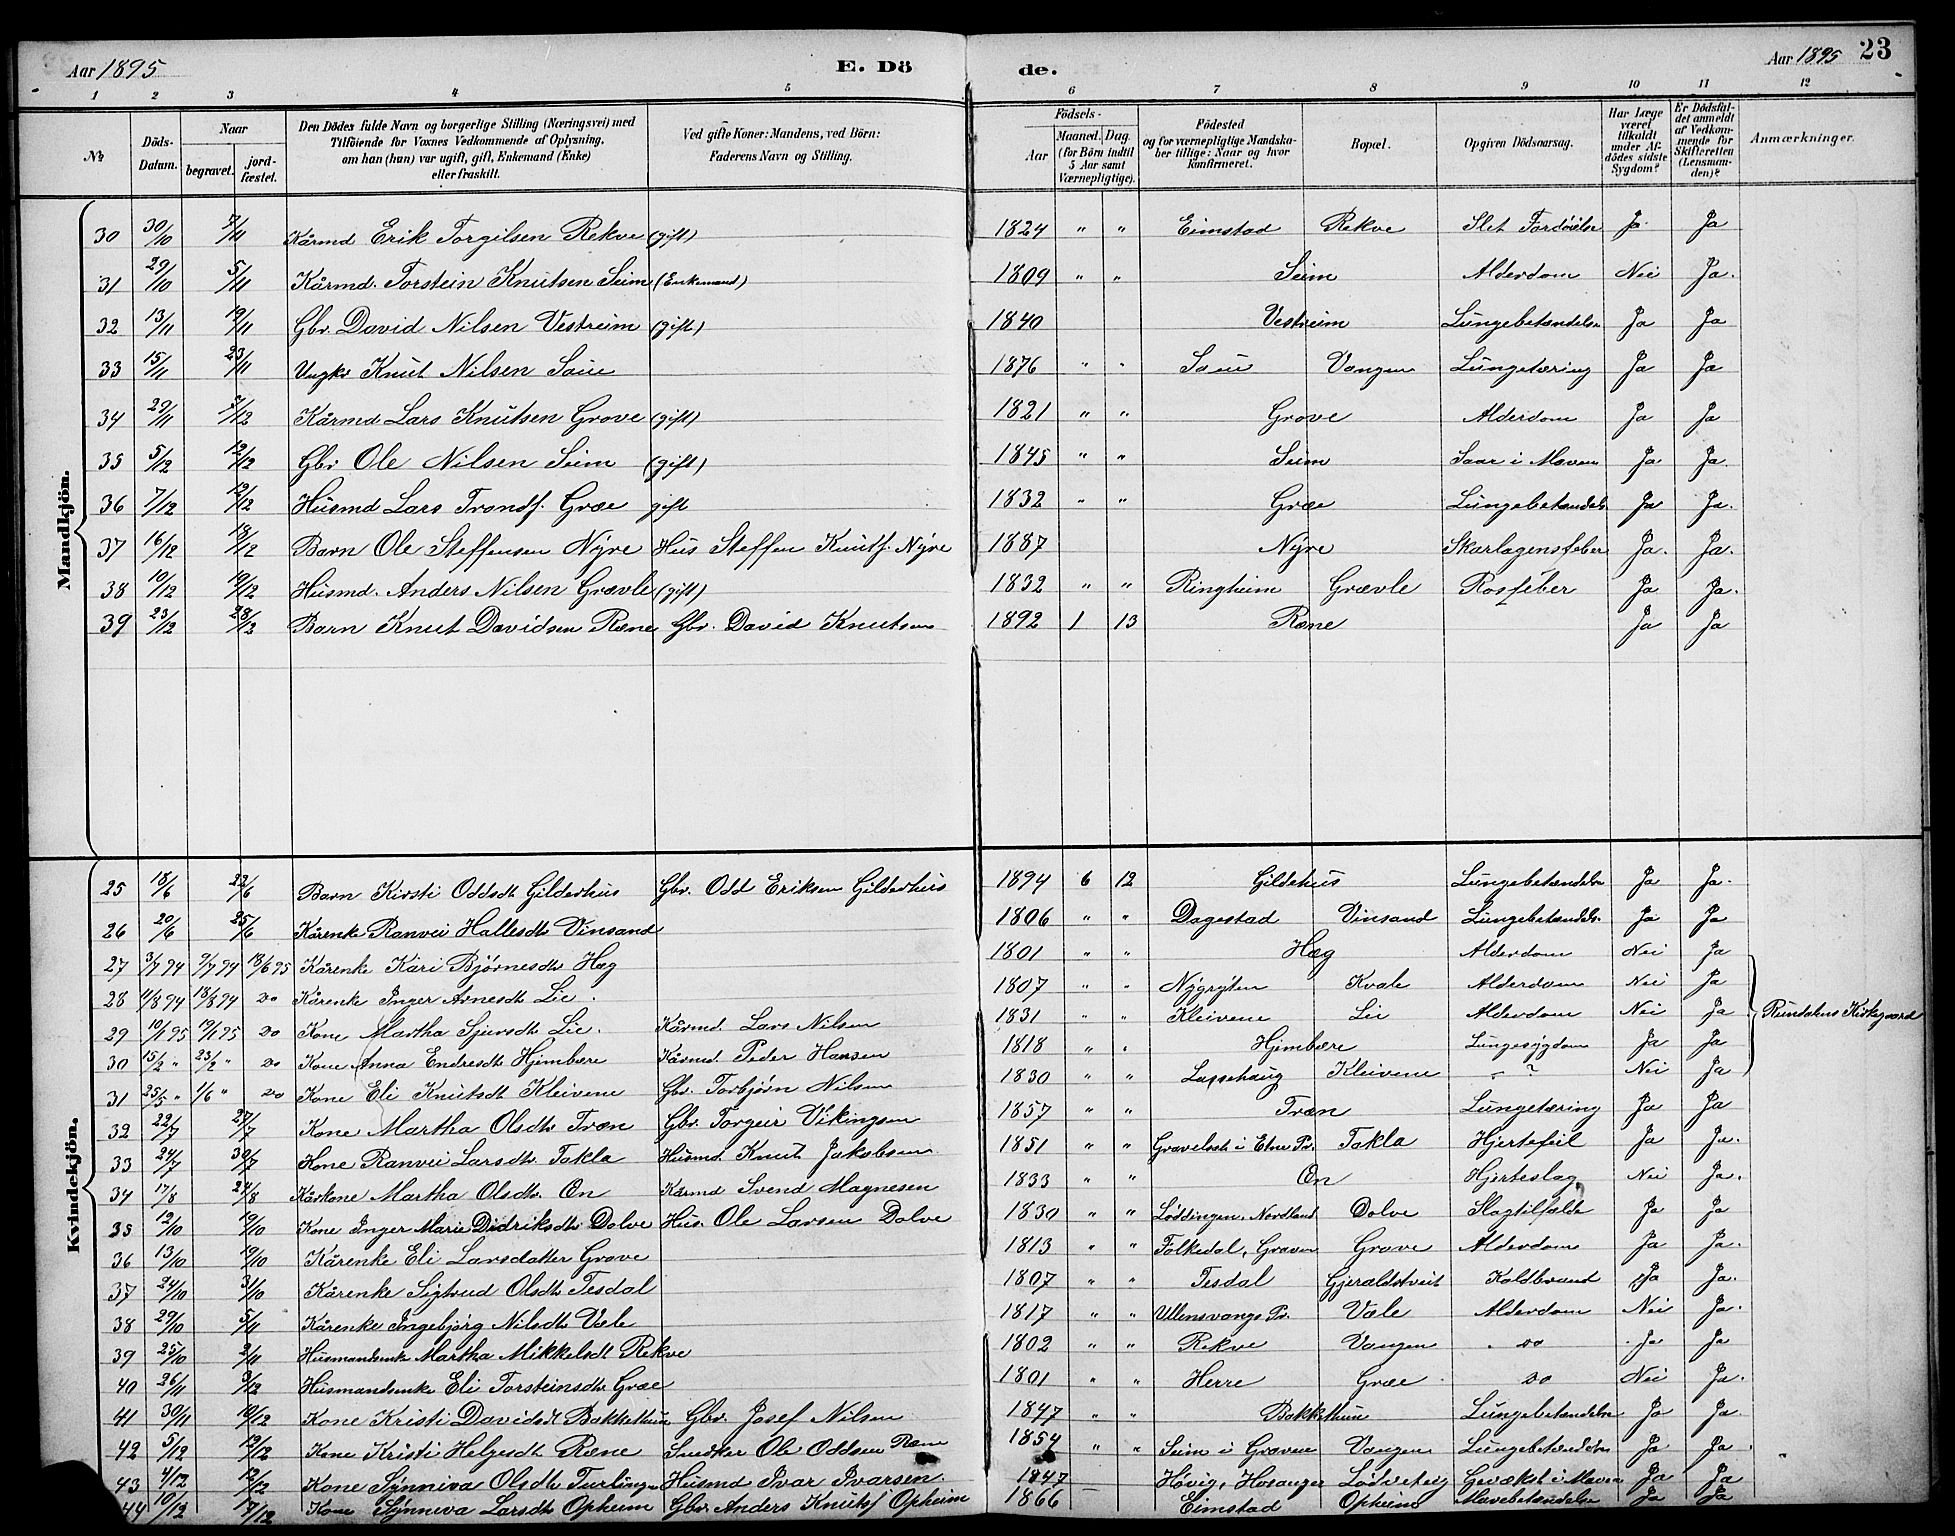 Aar 1895 E. Dö de. Aar 1895 23
1 2 3 4 5 6 7 8 9 10 11 12
№ Döds-Datum. Naar begravet. jord-fæstet. Den Dödes fulde Navn og borgerlige Stilling (Næringsvei) med Tilföiende for Voxnes Vedkommende af Oplysning, om han (hun) var ugift, gift, Enkemand (Enke) eller fraskilt. Ved gifte Koner: Mandens, ved Börn: Faderens Navn og Stilling. Födsels- Aar Maaned. Dag. (for Börn indtil 5 Aar samt Værnepligtige). Födested og for værnepligtige Mandska-ber tillige: Naar og hvor Konfirmeret. Bopæl. Opgiven Dödsaarsag. Har Læge været tilkaldt under Af-dödes sidste Sygdom? Er Dödsfal-det anmeldt af Vedkom-mende for Skifteretten (Lensman-den)? Anmærkninger.
Mandkjön.
30 30/10 7/11 Kårmd Erik Torgilsen Rekve (gift) 1824 " " Eimstad Rekve Slet Fordøielse Ja Ja
31 29/10 5/11 Kårmd. Torstein Knutsen Seim (Enkemand) 1809 " " Seim Alderdom Nei Ja.
32 13/11 19/11 Gbr. David Nilsen Vestreim (gift) 1840 Vestreim Lungebetændelse Ja Ja
33 15/11 23/11 Ungkr Knut Nilsen Saue 1876 " " Saue Vangen Lungetæring Ja Ja
34 29/11 7/12 Kårmd Lars Knutsen Grove (gift) 1821 " " Grove Alderdom Ja Ja
35 5/12 12/12 Gbr Ole Nilsen Seim (gift) 1845 " " Seim Saar i Maven Ja Ja
36 7/12 12/12 Husmd Lars Trondf. Græe gift 1832 " " Græe Lungebetændels Ja Ja.
37 16/12 18/12 Barn Ole Steffensen Nyre Hus Steffen Knutf. Nyre 1887 Nyre Skarlagensfeber Ja. Ja.
38 10/12 19/12 Husmd. Anders Nilsen Grævle (gift) 1832 " " Ringheim Grævle Rosfeber Ja Ja.
39 23/12 28/12 Barn Knut Davidsen Ræne Gbr. David Knutsen 1892 1 13 Ræne Ja Ja
Kvindekjön.
25 18/6 22/6 Barn Kirsti Oddsdt Gilderhus Gbr. Odd Eriksen Gilderhus 1894 6 12 Gildehus Lungebetændelse Ja Ja.
26 20/6 25/6 Kårenke Ranvei Hallesdtr Vinsand 1806 " " Dagestad Vinsand Lungebetændels. Ja Ja
27 3/7 94 9/7 94 18/6 95 Kårenke Kari Bjørnesdtr Hæg 1801 " " Hæg Alderdom Nei Ja
28 11/8 94 18/8 94 do Kårenke Inger Arnesdtr Lie. 1807 " " Nygryten Kvale Alderdom Nei Ja
29 10/1 95 19/1 95 do Kone Martha Sjursdtr Lie. Kårmd. Lars Nilsen 1831 " " Kleivene Lie Alderdom Nei Ja Rundalens Kirkegaard
30 15/2 " 23/2 " do Kone Anna Endresdtr Hjembære Kårmd. Peder Hansen 1818 " " Hjembære Lungesygdom Ja Ja
31 25/5 " 1/6 " do Kone Eli Knutsdt Kleivene Gbr. Torbjørn Nilsen 1830 " " Lassehaug Kleivene " ? Nei Ja
32 22/7 27/7 Kone Martha Olsdtr Træn Gbr. Torgeir Vikingsen 1857 " " Træn Lungetæring Ja Ja
33 24/7 30/7 Kone Ranvei Larsdtr Takla Husmd. Knut Jakobsen 1851 " " Gravelseth i Etne Pr. Takla Hjertefeil Ja Ja.
34 17/8 24/8 Kårkone Martha Olsdtr. Øn Kårmd Svend Magnesen 1833 " " Øn Hjerteslag Nei Ja.
35 12/10 19/10 Kone Inger Marie Didriksdtr Dolve Hus. Ole Larsen Dolve 1830 " " Löddingen, Nordland Dolve Slagtilfælde Ja Ja
36 13/10 19/10 Kårenke Eli Larsdatter Grove 1813 " " Folkedal, Graven Grove Alderdom Ja Ja.
37 24/10 31/10 Kårenke Sigtrud Olsdtr Tesdal 1807 " " Tesdal Gjeraldstveit Koldbrand Ja Ja.
38 29/10 5/11 Kårenke Ingebjørg Nilsdtr Væle 1817 " " Ullensvangs Pr. Væle Alderdom Nei Ja.
39 25/10 2/11 Husmandsenke Martha Mikkelsdt Rekve 1802 " " Rekve Vangen do Ja Ja
40 26/11 3/12 Husmandsenke Eli Torsteinsdtr Græe 1801 " " Herre Græe do Nei Ja.
41 30/11 10/12 Kone Kristi Davidsdt Bakkethun Gbr. Josef Nilsen 1847 " " Bakkethun Lungebetændelse Ja Ja
42 5/12 12/12 Kone Kristi Helgesdt Ræne Snedker Ole Oddsen Ræne 1854 " " Seim i Graven Vangen Lungebetændelse Ja Ja.
43 4/12 12/12 Kone Synniva Olsdtr Husmd Ivar Ivarsen 1847 Høvig, Hosanger Lødvetveg Gevækst i Maven Ja Ja
44 10/12 17/12 Kone Synneva Larsdtr Opheim Gbr. Anders Knutsf Opheim 1866 Eimstad Opheim Mavebetændelse Ja Ja